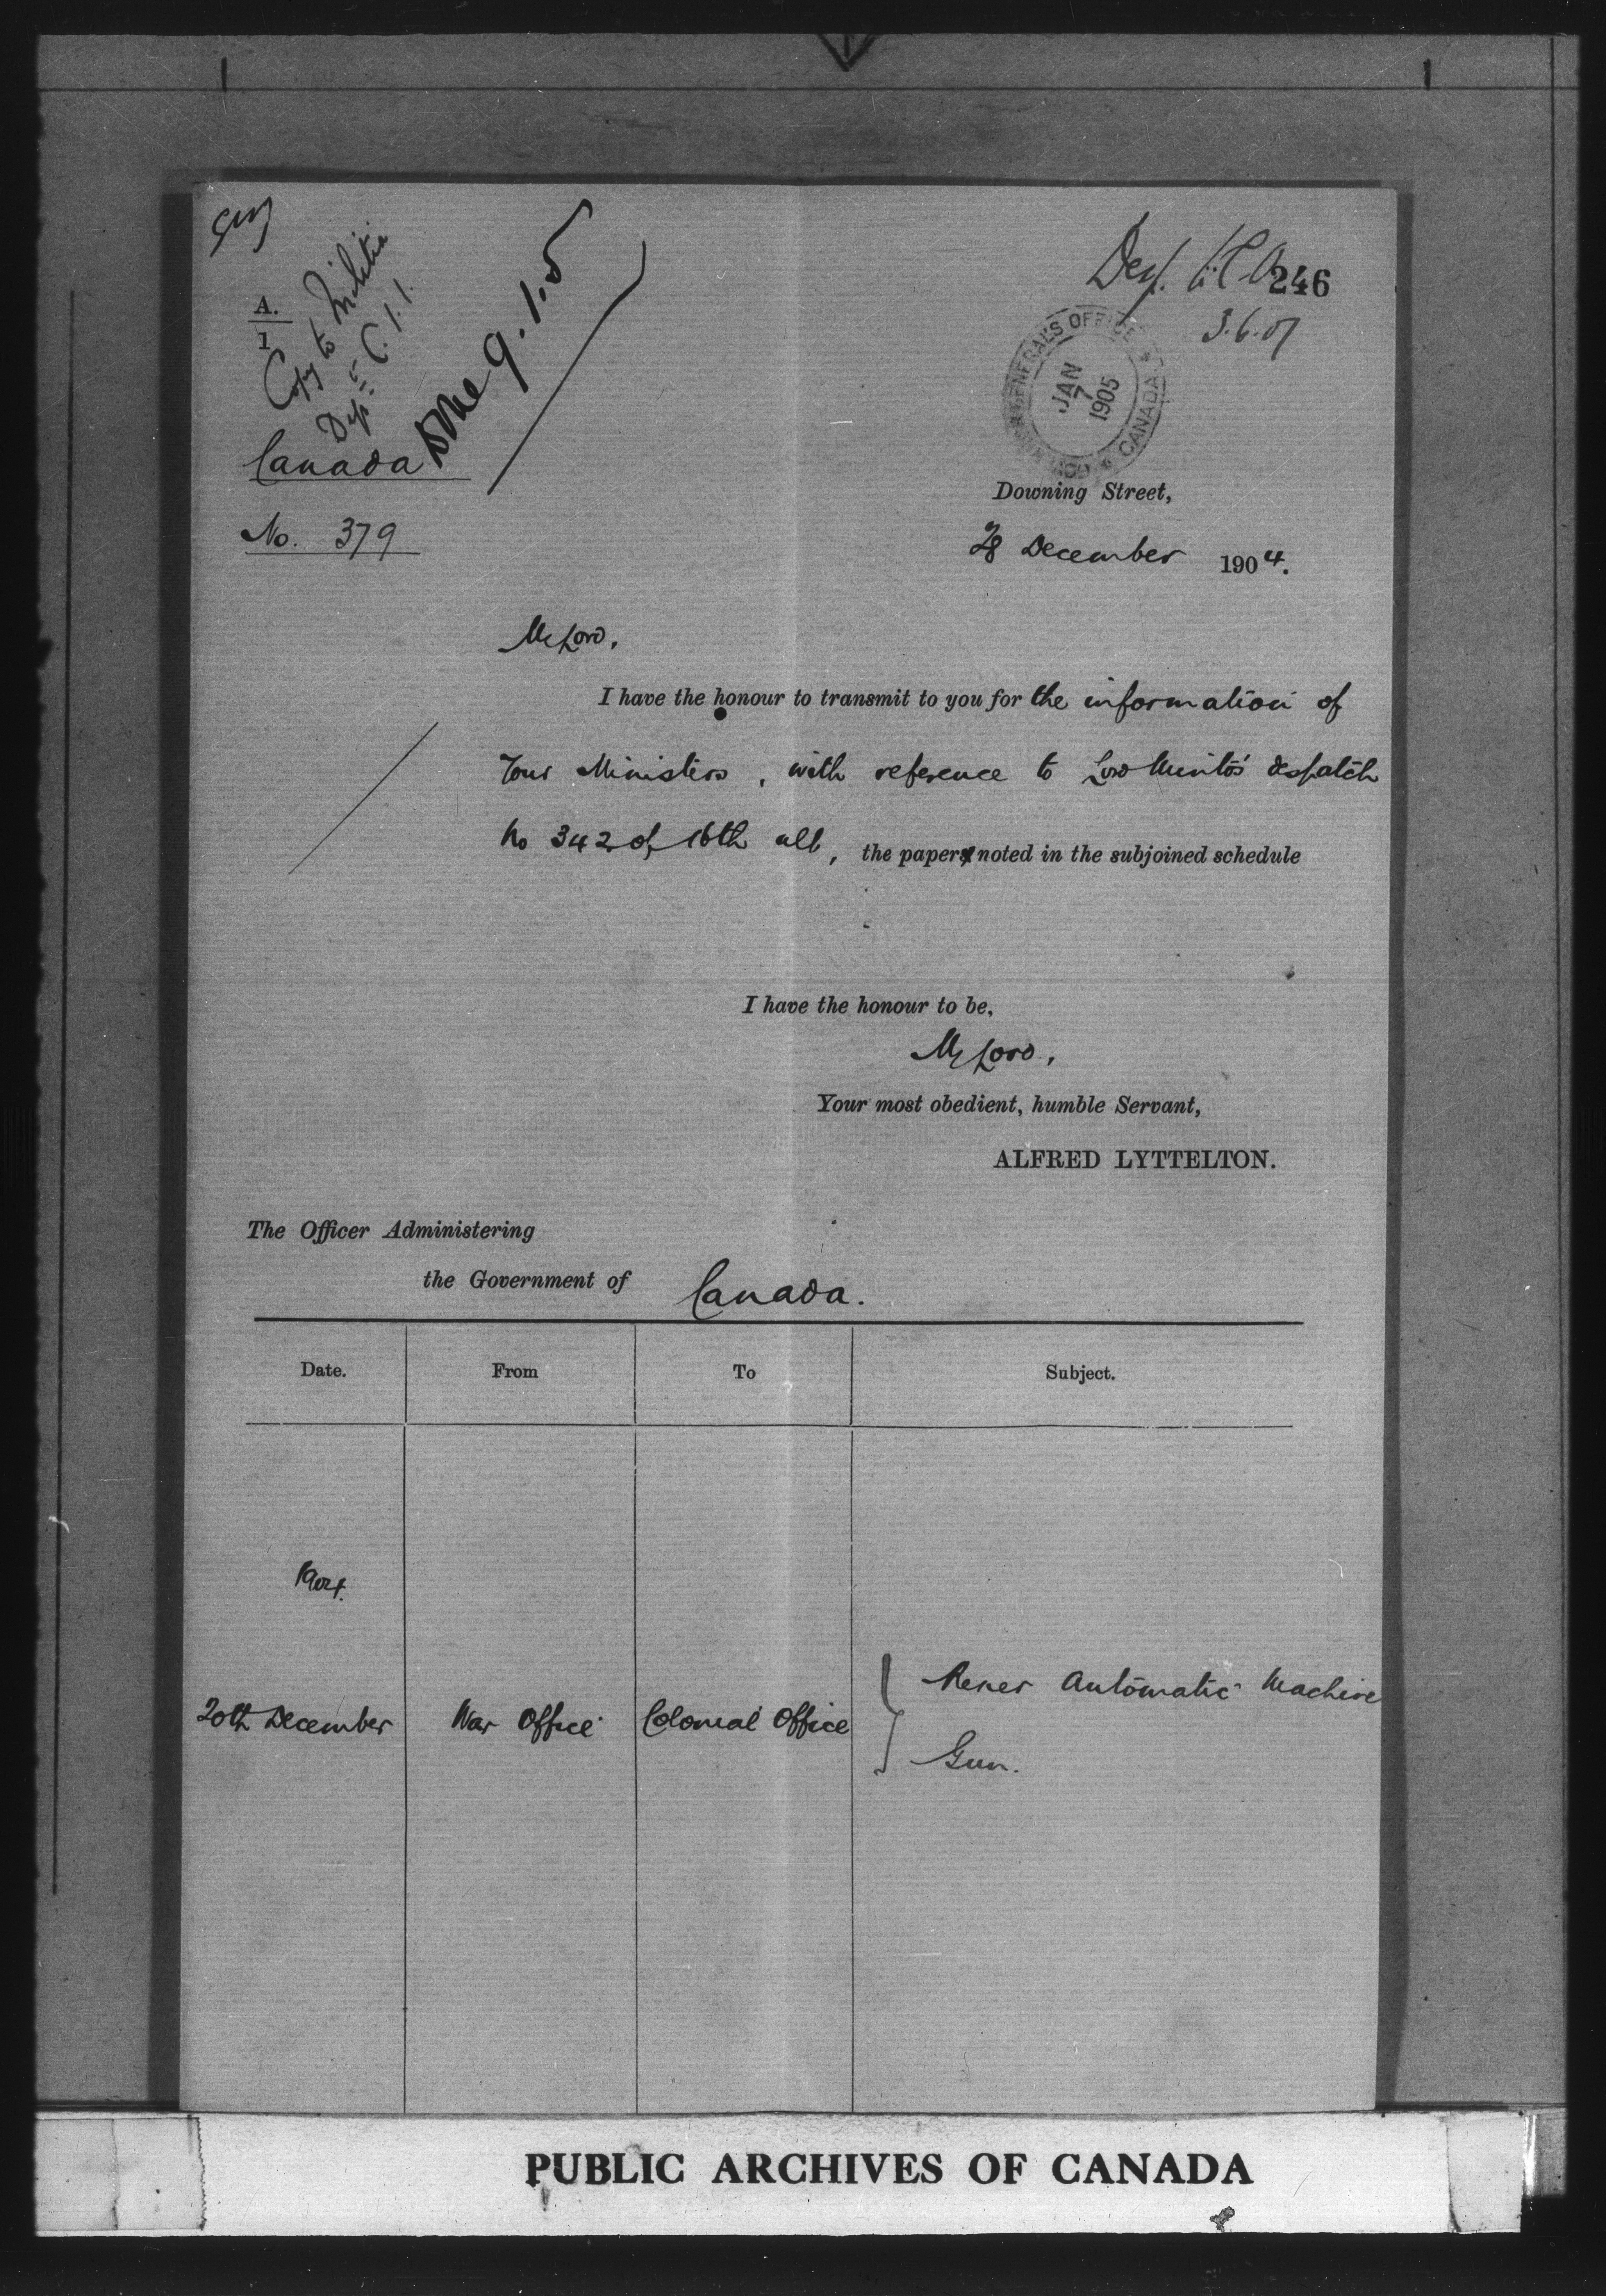 246
3.6.07
A.
1
Copy to Militia
Dept
Done 9.1.5
GENERAL'S OFFICE
JAN
7
1905
CANADA
Canada
No. 379
Downing Street,
28 December 1904.
My Lord,
I have the honour to transmit to you for the information of
Your Ministers, with reference to Lord Minto's despatch
No 342 of 16th ult, the paper noted in the subjoined schedule
I have the honour to be,
My Lord,
Your most obedient, humble Servant,
ALFRED LYTTELTON.
The Officer Administering
the Government of Canada.
Date. From To Subject.
1904.
20th December War Office Colonial Office Automatic Machine
Gun.
PUBLIC ARCHIVES OF CANADA